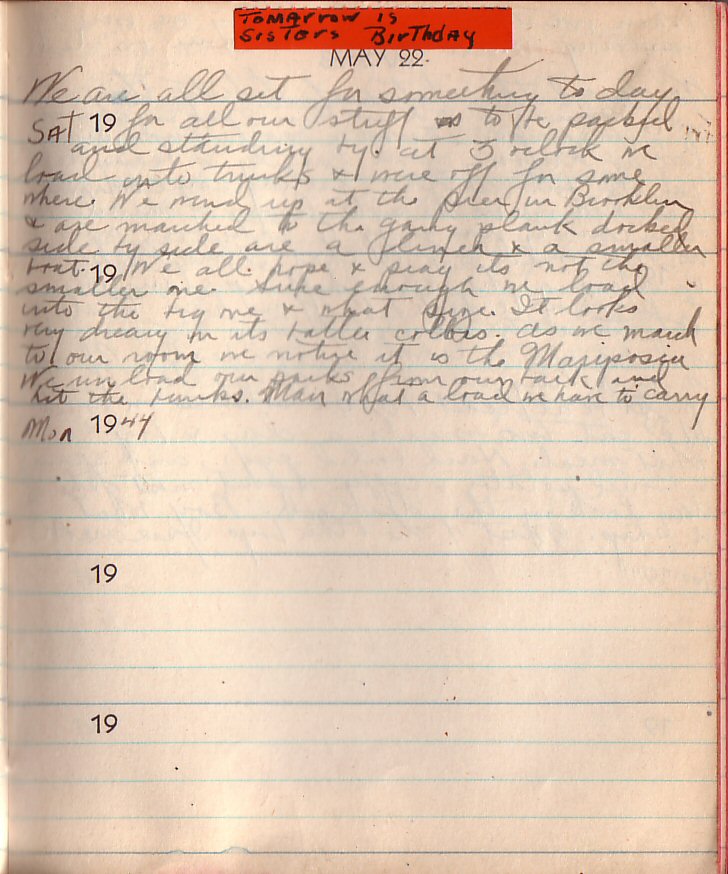 Tomarrow is
Sisters Birthday
MAY 22
We are all set for something to day
Sat 19 for all our stuff is to be packed
and standing by. at 3 oclock we
load into trucks & were off for some
where. We wind up at the pier in Brooklin
& are marched to the gang plank docked
side by side are a liner & a smaller
boat. We all hope & pray its not the
19
smaller one. Sure enough we load
into the big one & what size. It looks
very dreary in its battle colors. as we march
to our room we notice it is the Mariposia
We un load our packs from our back and
hit the bunks. Man what a load we have to carry
Mon 1944
19
19